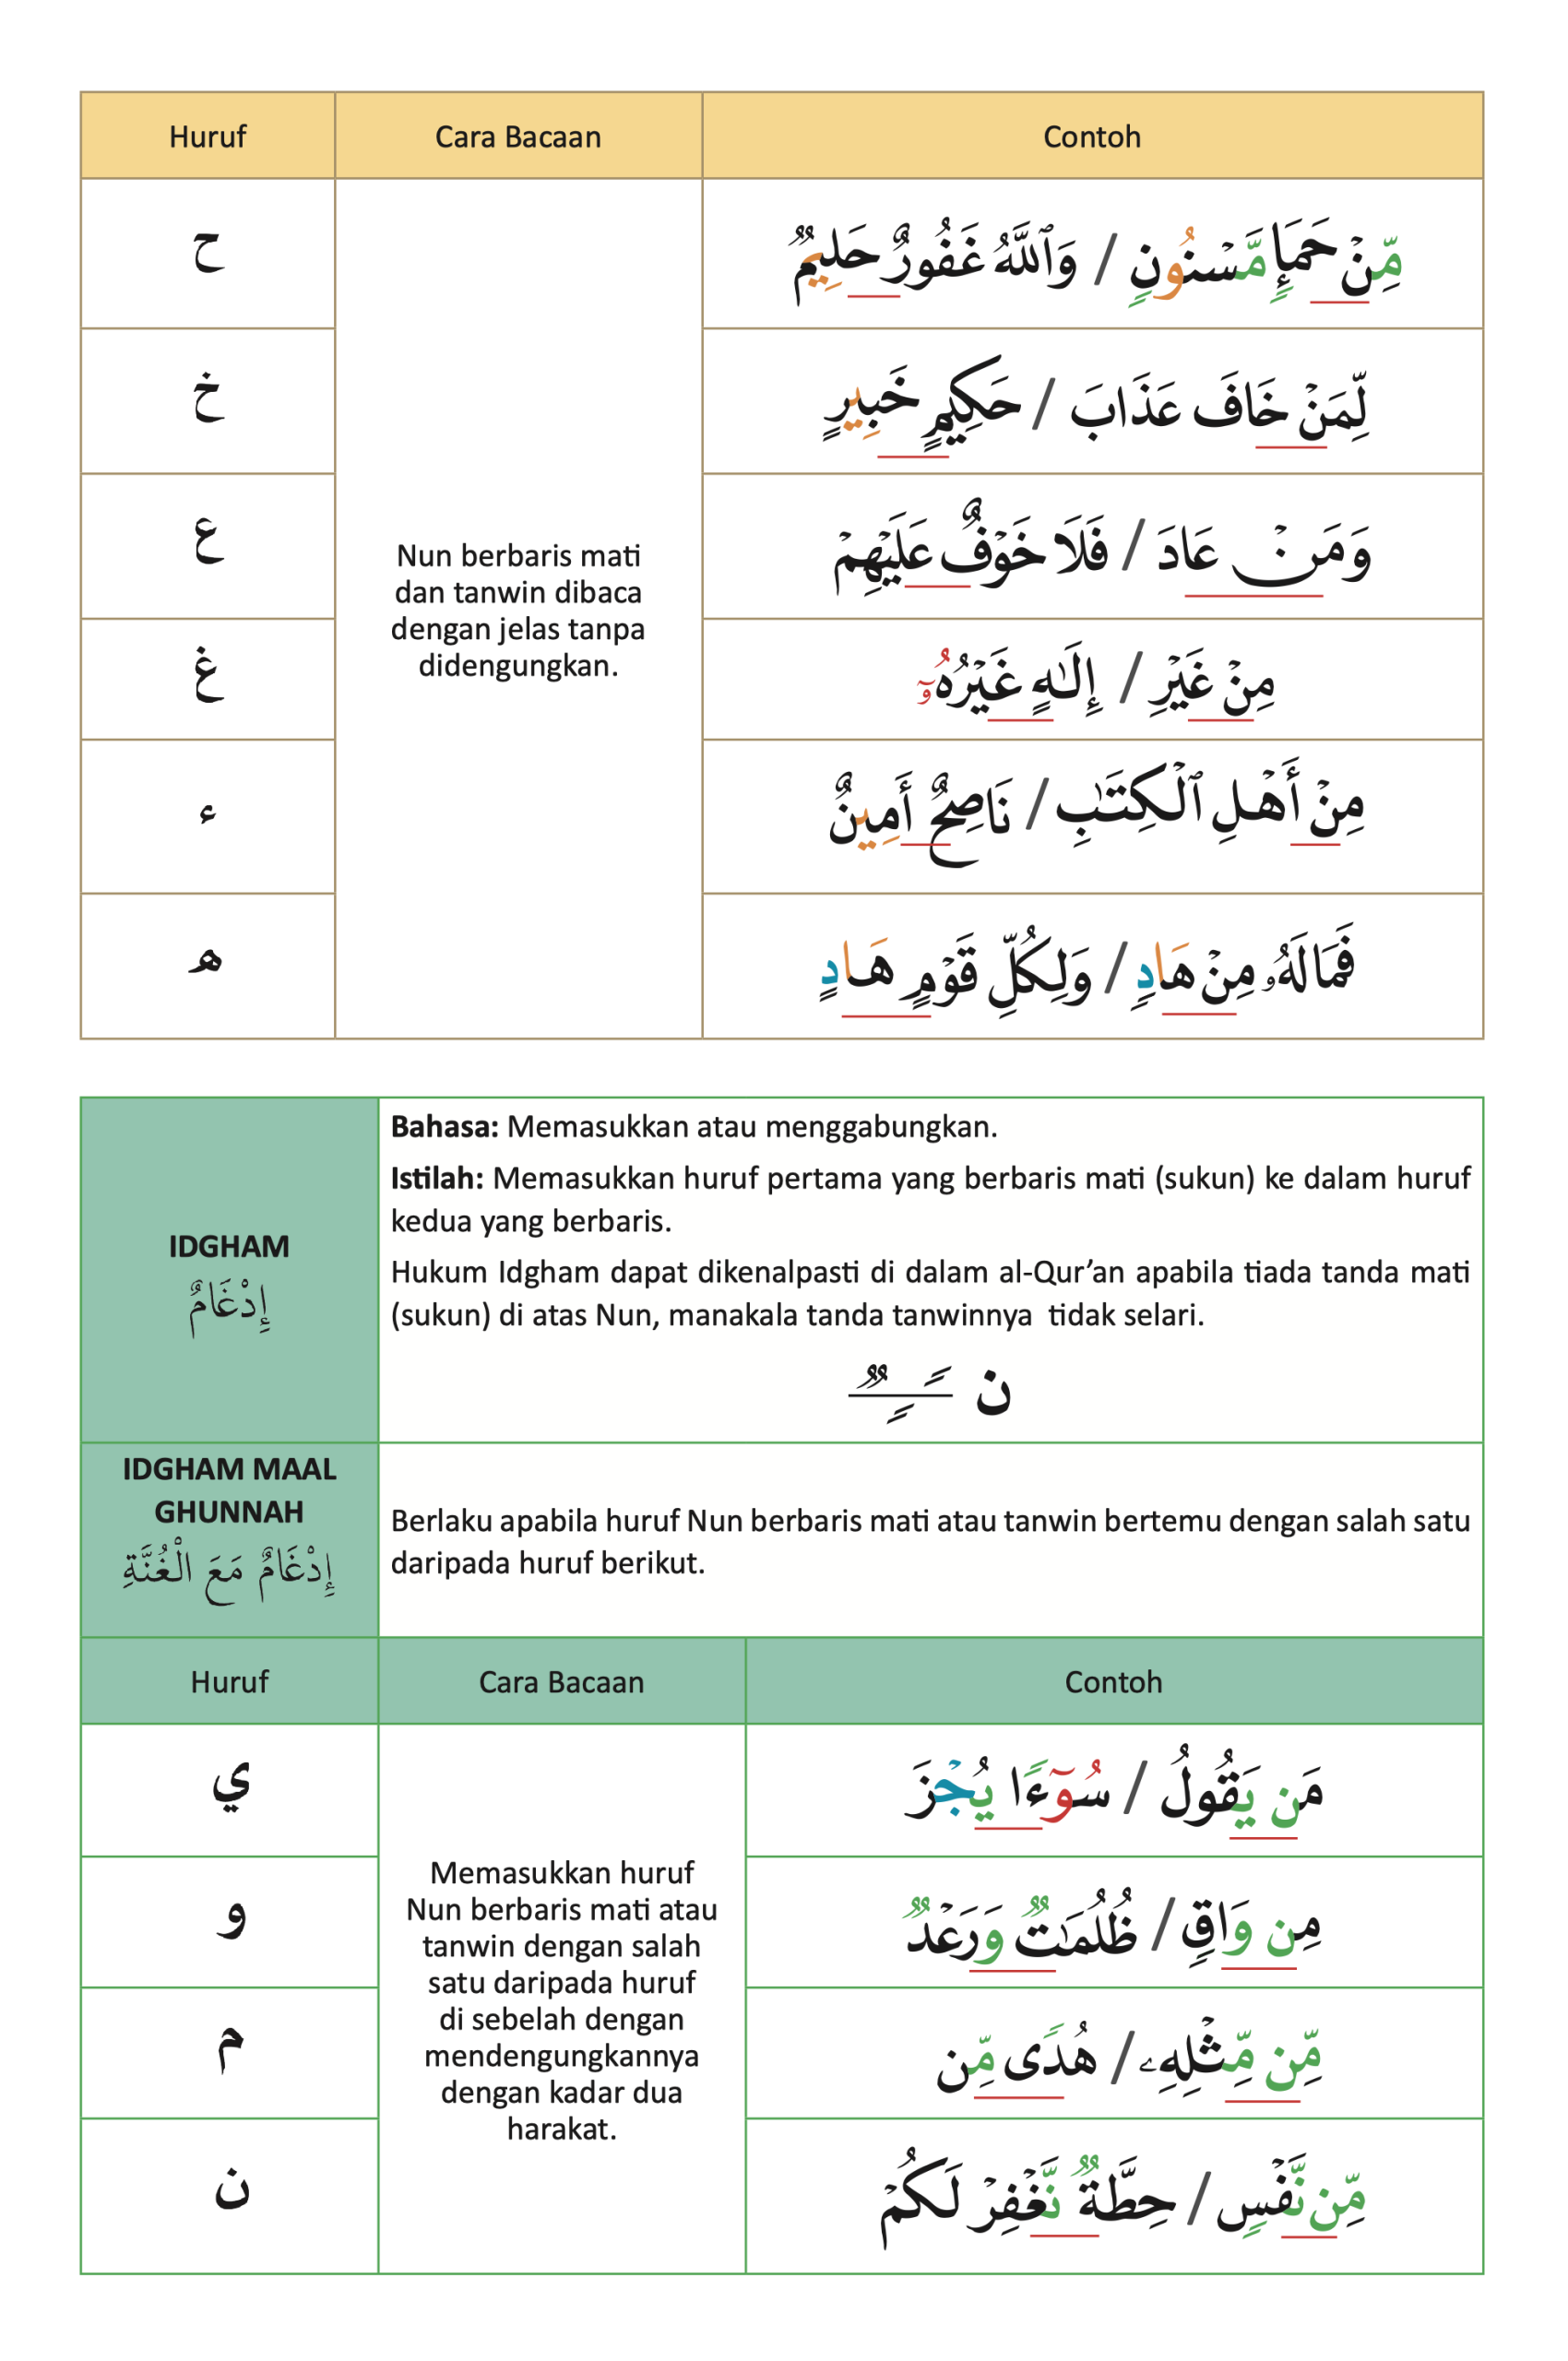 Huruf
Cara Bacaan
Contoh
ح
مِّنْ حَمَإٍ مَّسْنُونٍ / وَٱللَّهُ غَفُورٌ حَلِيمٌ
خ
لِّمَنْ خَافَ عَذَابَ / حَكِيمٍ خَبِيرٍ
ع
وَمَنْ عَادَ / فَلَا خَوْفٌ عَلَيْهِمْ
غ
مِنْ غَيْرِ / إِلَـٰهٍ غَيْرُهُۥٓ
ء
مِنْ أَهْلِ ٱلْكِتَـٰبِ / نَاصِحٌ أَمِينٌ
ه
فَمَا لَهُۥ مِنْ هَادٍ / وَلِكُلِّ قَوْمٍ هَادٍ
Nun berbaris mati
dan tanwin dibaca
dengan jelas tanpa
didengungkan.
IDGHAM
إِدْغَامٌ
Bahasa: Memasukkan atau menggabungkan.
Istilah: Memasukkan huruf pertama yang berbaris mati (sukun) ke dalam huruf
kedua yang berbaris.
Hukum Idgham dapat dikenalpasti di dalam al-Qur’an apabila tiada tanda mati
(sukun) di atas Nun, manakala tanda tanwinnya tidak selari.
ن ـًـٍـٌ
IDGHAM MAAL
GHUNNAH
إِدْغَامٌ مَعَ الْغُنَّةِ
Berlaku apabila huruf Nun berbaris mati atau tanwin bertemu dengan salah satu
daripada huruf berikut.
Huruf
Cara Bacaan
Contoh
ي
مَن يَقُولُ / سُوٓءًا يُجْزَ
و
مِن وَاقٍ / ظُلُمَـٰتٌ وَرَعْدٌ
م
مِّن مِّثْلِهِۦ / هُدًى مِّن
ن
مِّن نَّفْسٍ / حِطَّةٌ نَّغْفِرْ لَكُمْ
Memasukkan huruf
Nun berbaris mati atau
tanwin dengan salah
satu daripada huruf
di sebelah dengan
mendengungkannya
dengan kadar dua
harakat.